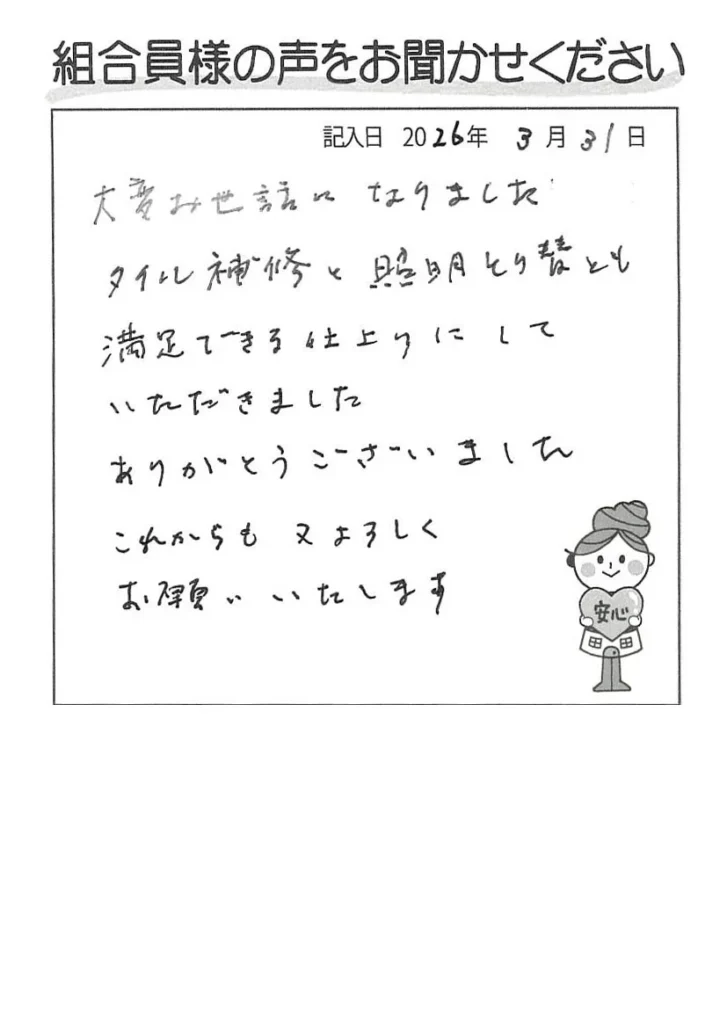 組合員様の声をお聞かせください
記入日 2026年 3月31日
大変お世話になりました
タイル補修と照明とり替とも
満足できる仕上りにして
いただきました
ありがとうございました
これからも又よろしく
お願いいたします
安心